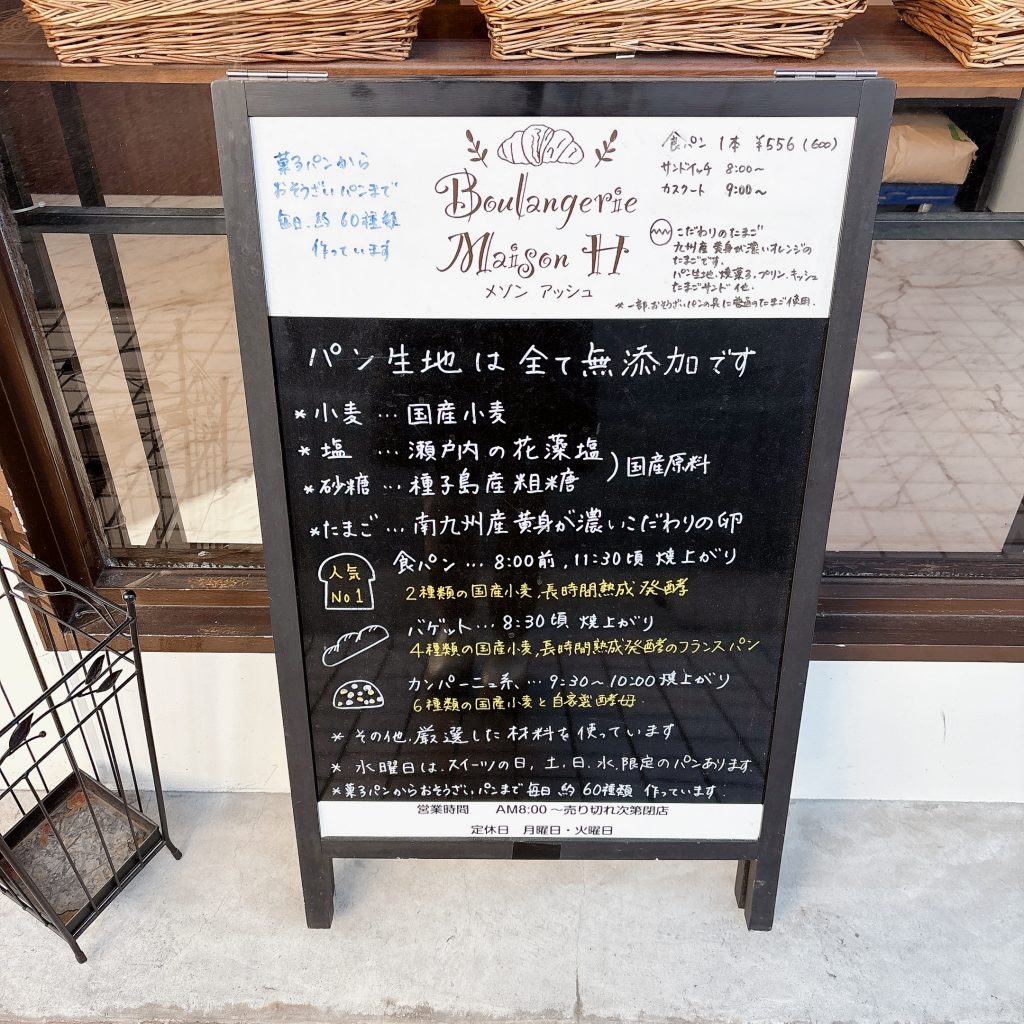 菓子パンから
おそうざいパンまで
毎日、約60種類
作っています
Boulangerie
Maison H
メゾン アッシュ
食パン 1本 ¥556(600)
サンドイッチ 8:00~
カスクート 9:00~
こだわりのたまご
九州産 黄身が濃いオレンジの
たまごです。
パン生地、焼菓子、プリン、キッシュ
たまごサンド 他.
*一部、おそうざいパンの具に普通のたまご使用.
パン生地は全て無添加です
*小麦…国産小麦
*塩 …瀬戸内の花藻塩
*砂糖…種子島産粗糖
)国産原料
*たまご…南九州産黄身が濃いこだわりの卵
人気
No1
食パン…8:00前,11:30頃 焼上がり
2種類の国産小麦,長時間熟成発酵
バゲット…8:30頃 焼上がり
4種類の国産小麦,長時間熟成発酵のフランスパン
カンパーニュ系、…9:30~10:00焼上がり
6種類の国産小麦と自家製酵母.
* その他,厳選した材料を使っています
* 水曜日は、スイーツの日, 土,日,水,限定のパンあります.
*菓子パンからおそうざいパンまで毎日 約 60種類 作っています.
営業時間 AM8:00~売り切れ次第閉店
定休日 月曜日・火曜日